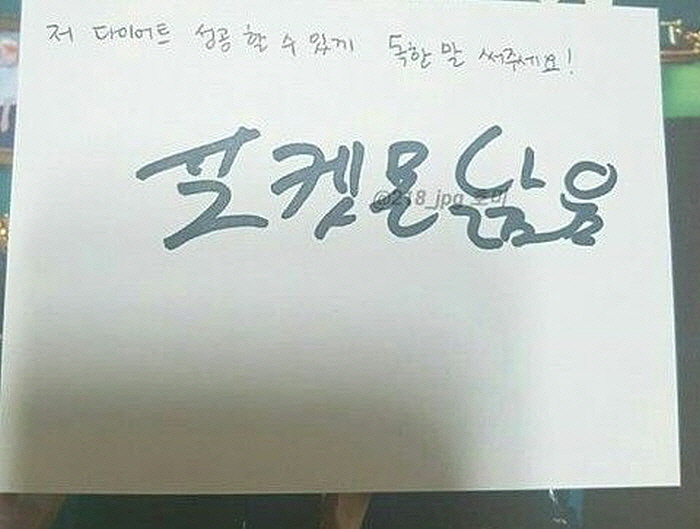 저 다이어트 성공 할 수 있게 독한 말 써주세요!
포켓몬 닮음